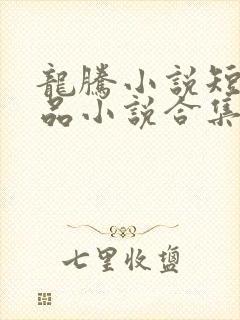 龍騰小說短
品小說合集
七里收鹽